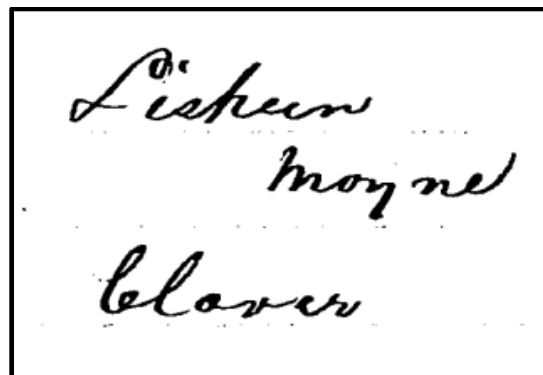 Lisheen
Moyne
Clover